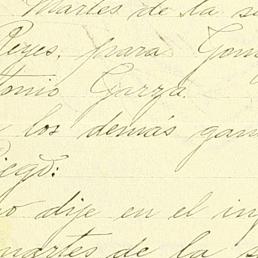 Martes de la s
Reyes, para Gon
tonio Garza.
los demás gan
Diego:
o dije en el in
martes de la s